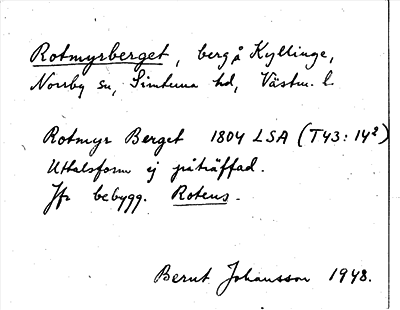 Rotmyrsberget, berg å Kyllinge,
Norrby sn, Simtuna hd, Västm. l.
Rotmyr Berget 1804 LSA (T43:14²)
Uttalsform ej påträffad.
Jfr bebygg. Rotens.
Bernt Johansson 1948.